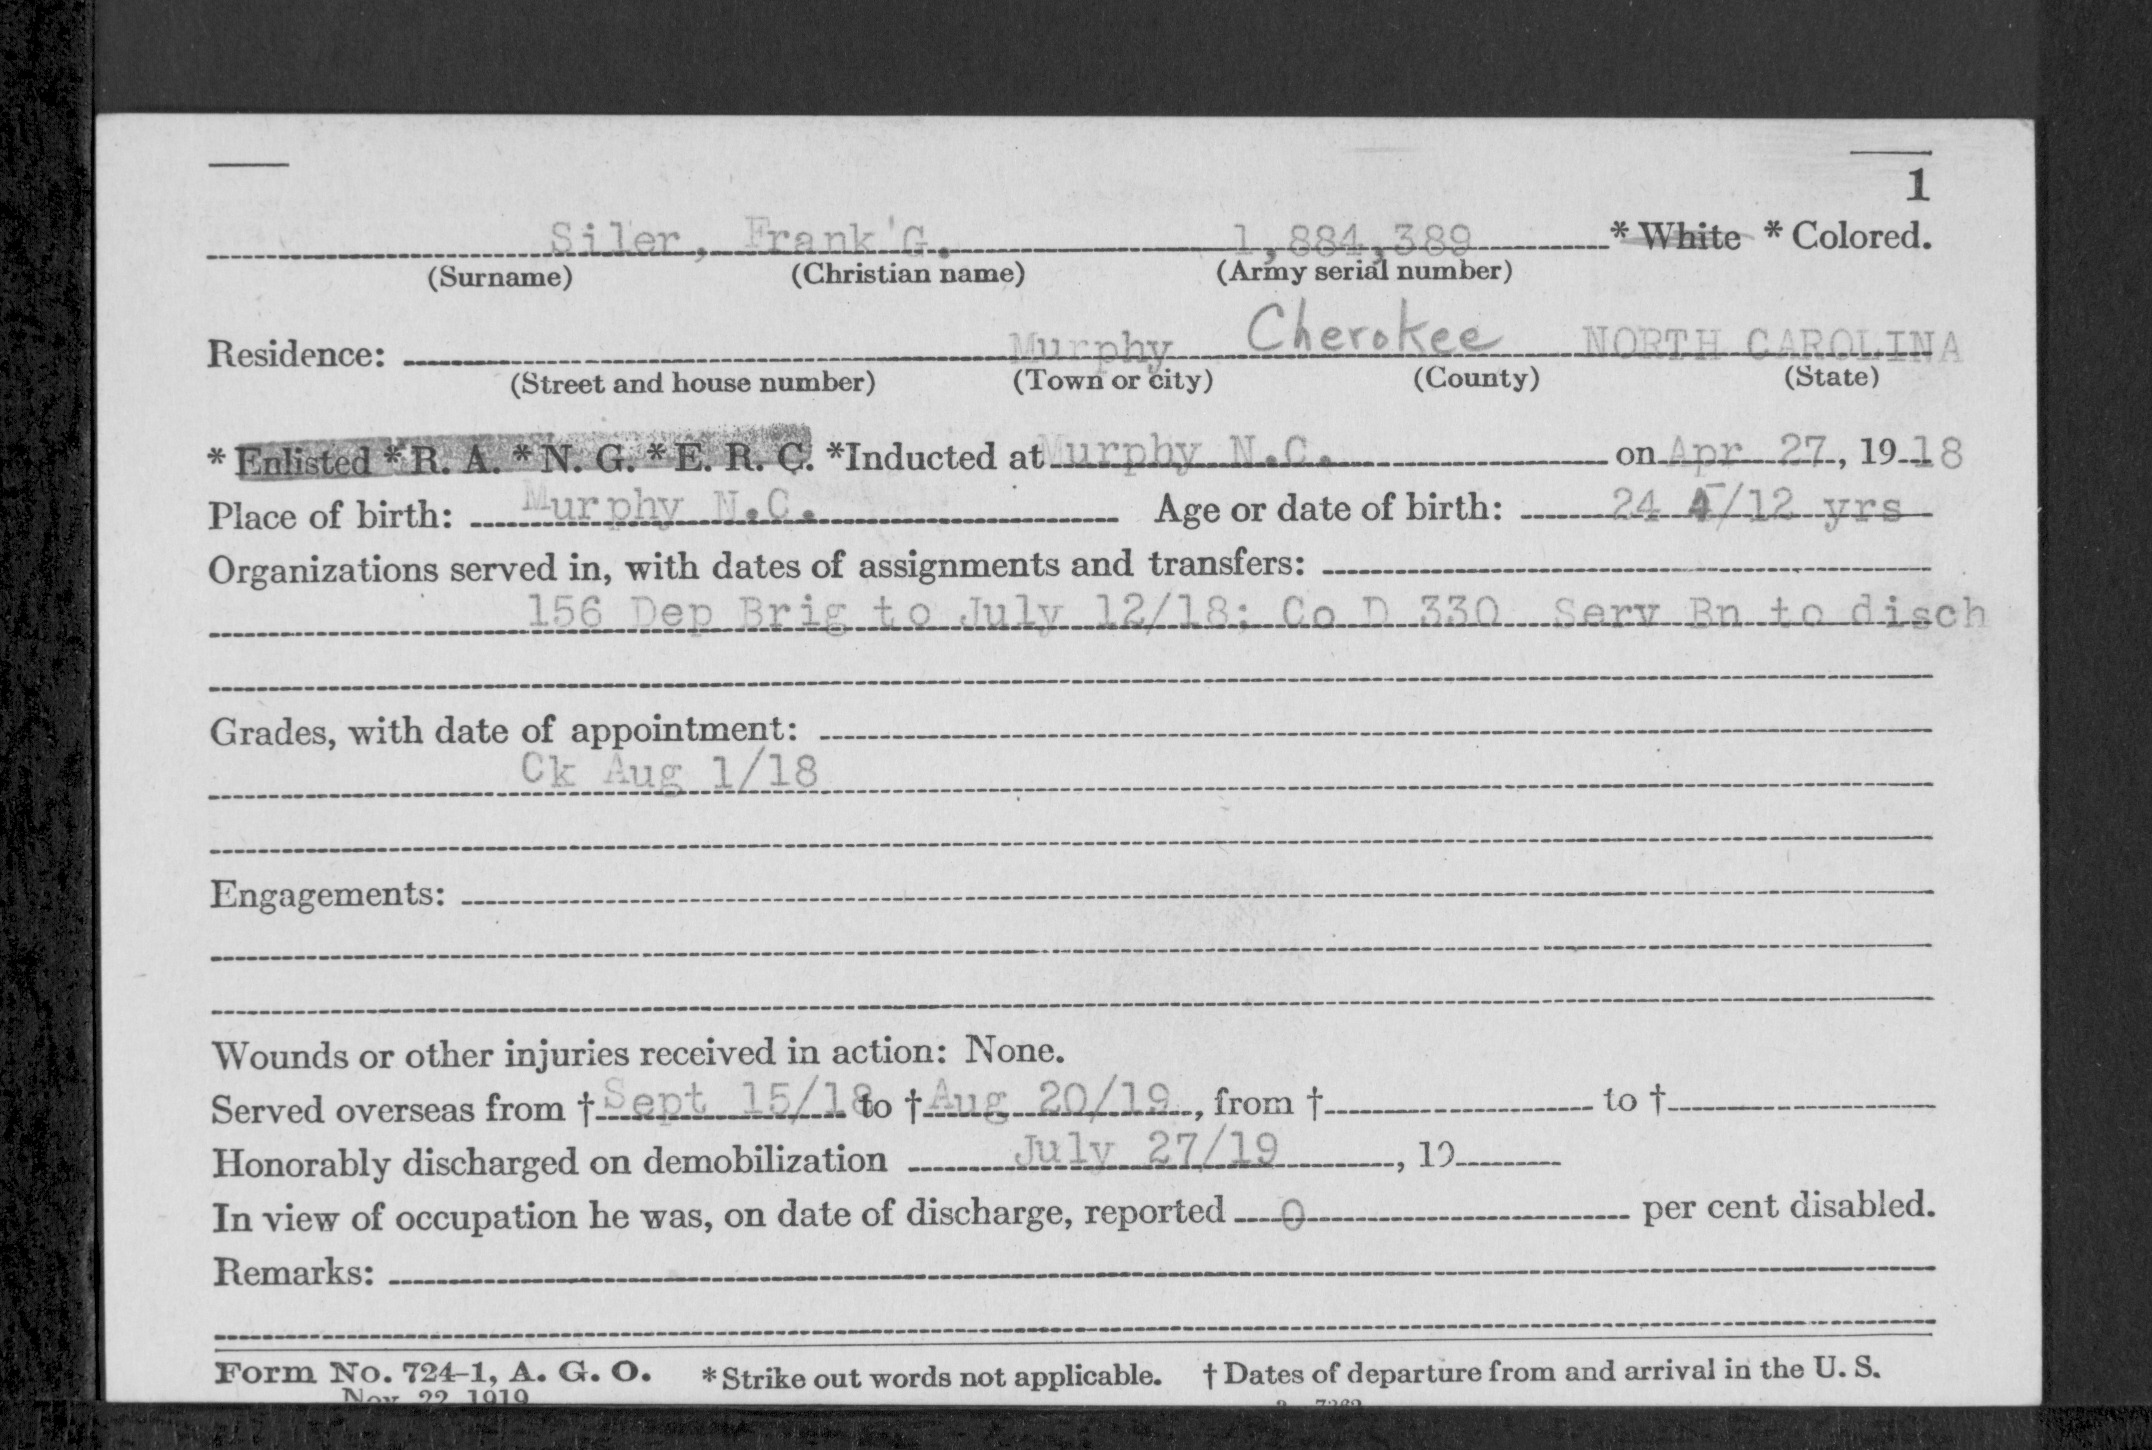 1
Siler, Frank G. 1,884,389 * White * Colored.
(Surname) (Christian name) (Army serial number)
Residence: Murphy Cherokee NORTH CAROLINA
(Street and house number) (Town or city) (County) (State)
* Enlisted * R. A. * N. G. * E. R. C. *Inducted at Murphy N.C. on Apr 27, 1918
Place of birth: Murphy N.C. Age or date of birth: 24 /12 yrs
Organizations served in, with dates of assignments and transfers:
156 Dep Brig to July 12/18; Co D 330 Serv Bn to disch
Grades, with date of appointment:
Ck Aug 1/18
Engagements:
Wounds or other injuries received in action: None.
Served overseas from † Sept 15/18 to † Aug 20/19, from † to †
Honorably discharged on demobilization July 27/19, 19
In view of occupation he was, on date of discharge, reported 0 per cent disabled.
Remarks:
Form No. 724-1, A. G. O. * Strike out words not applicable. † Dates of departure from and arrival in the U. S.
Nov. 22, 1919